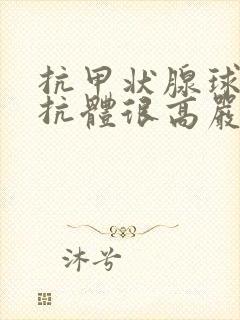 抗甲状腺球
抗體很高嚴
沐兮